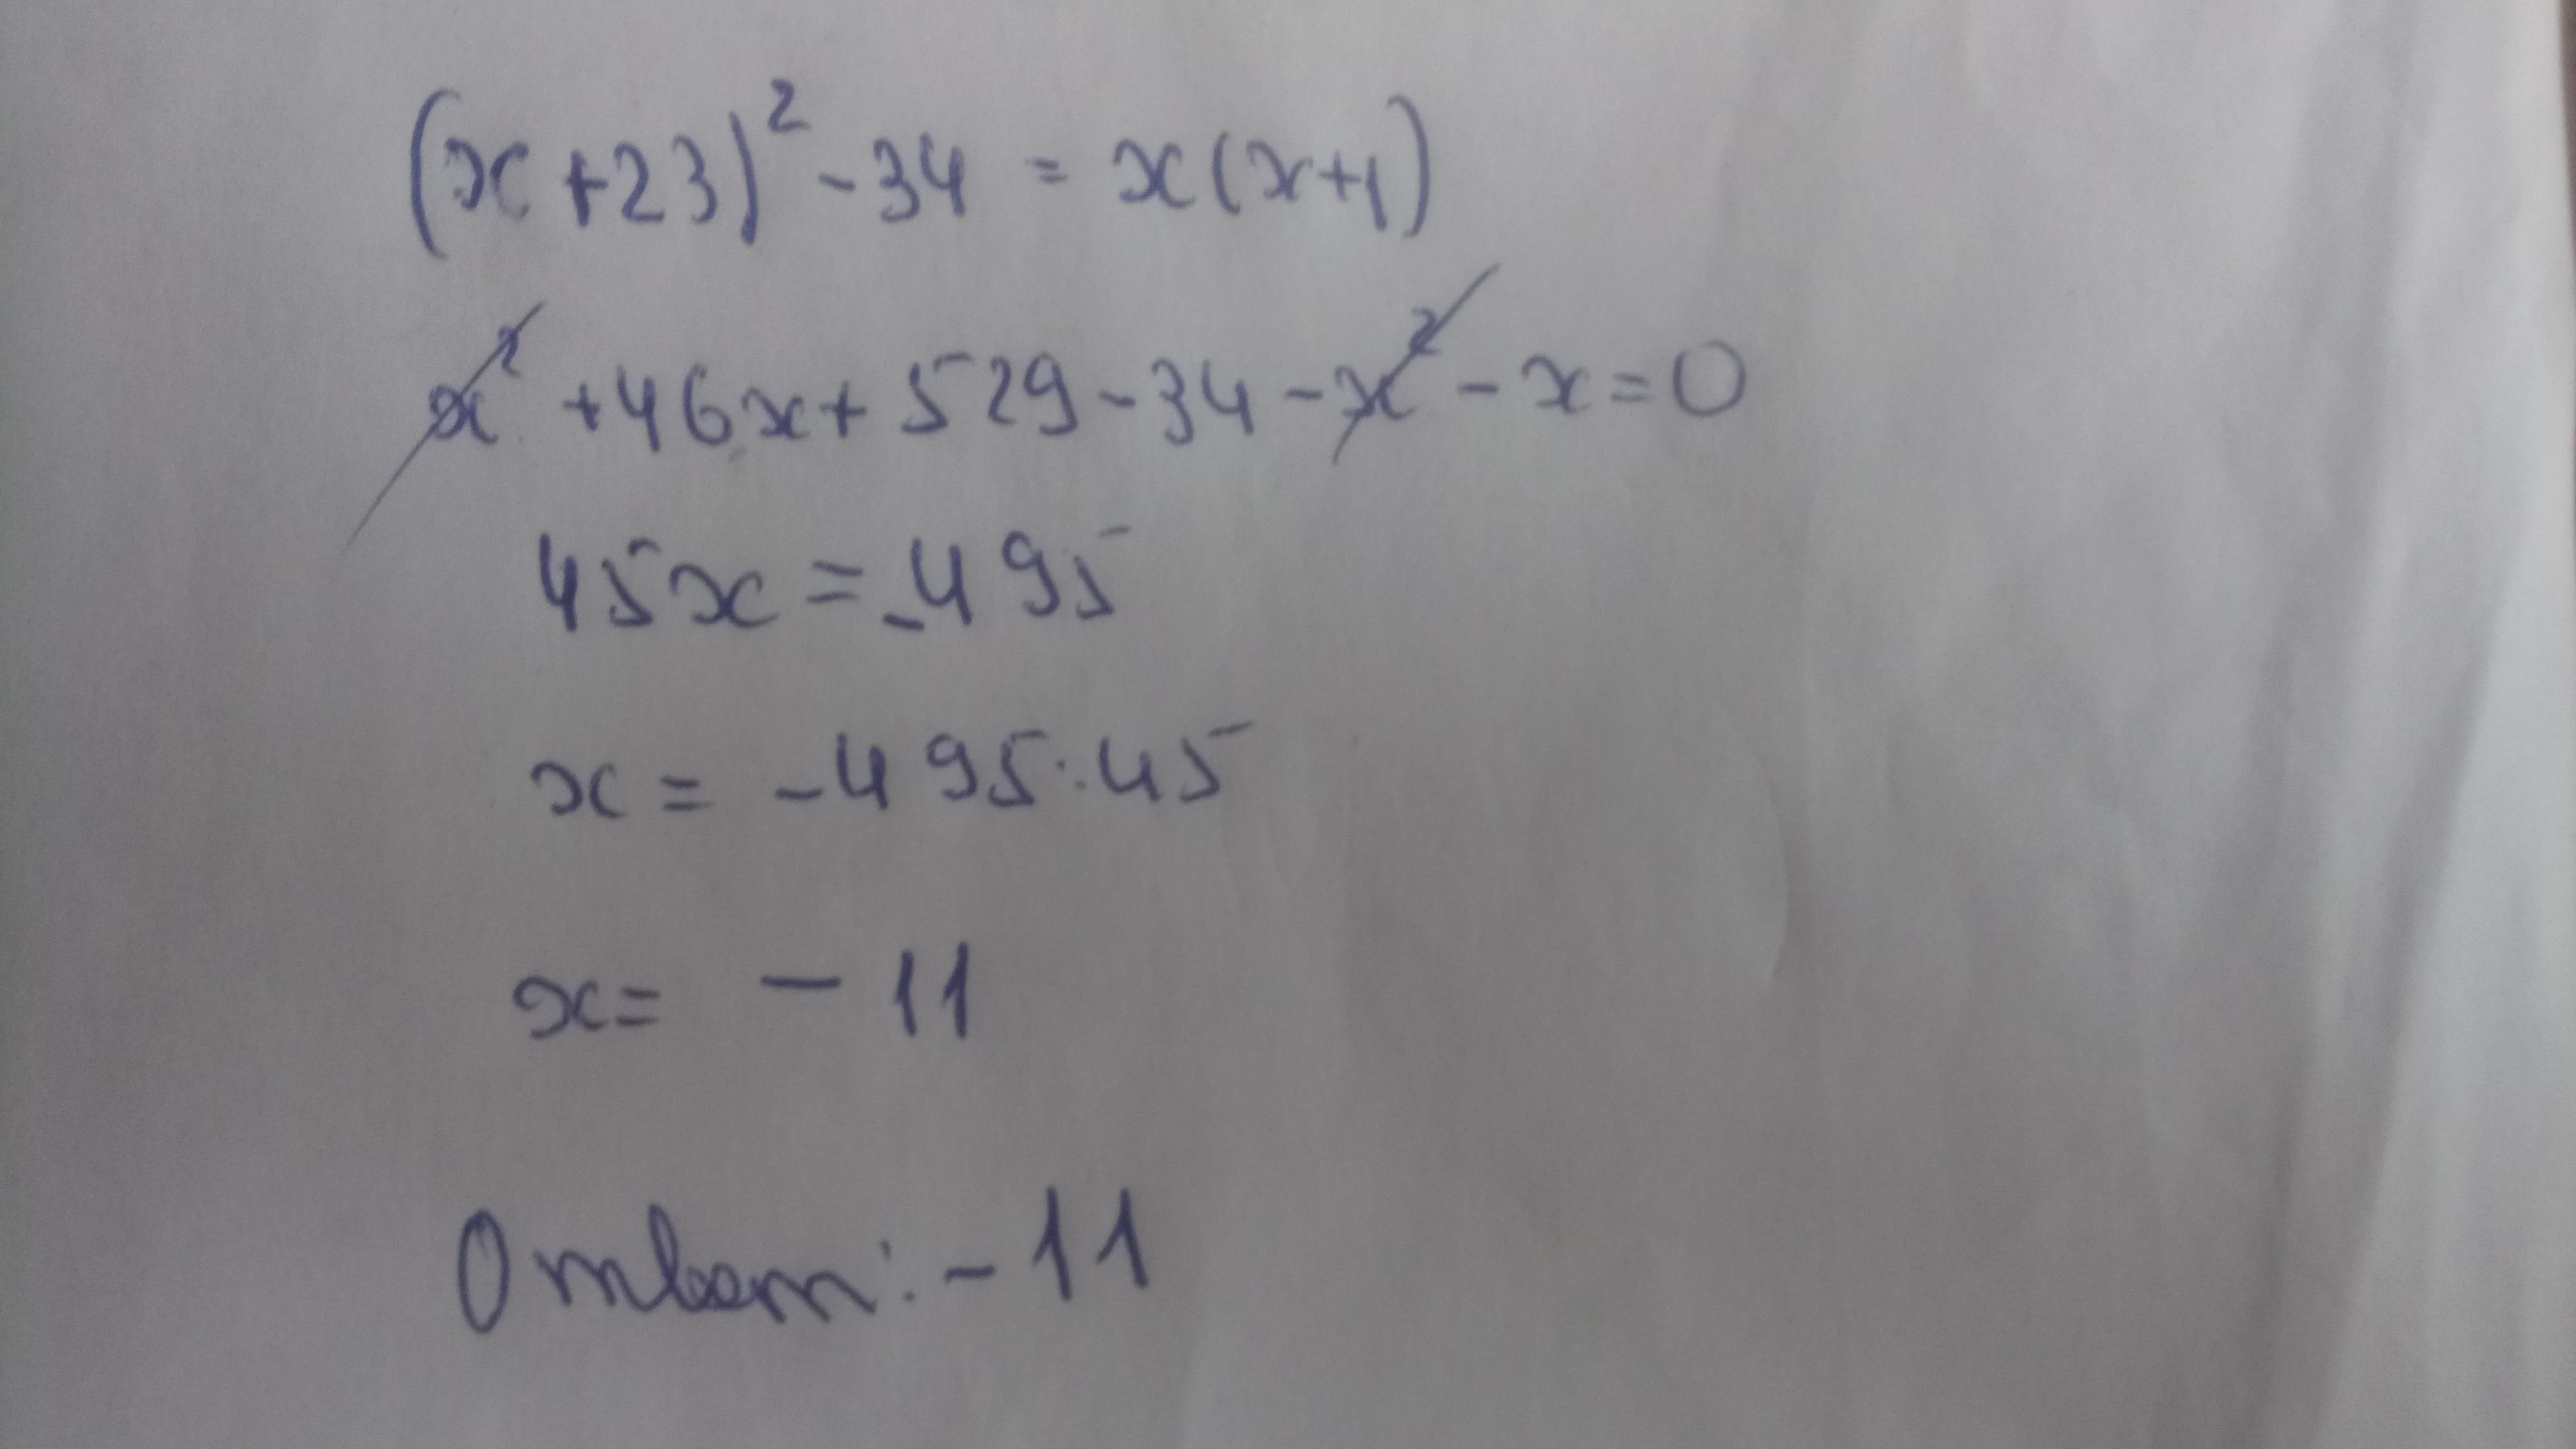 (x+23)² - 34 = x(x+1)
x² + 46x + 529 - 34 - x² - x = 0
45x = -495
x = -495:45
x = - 11
Ответ: -11